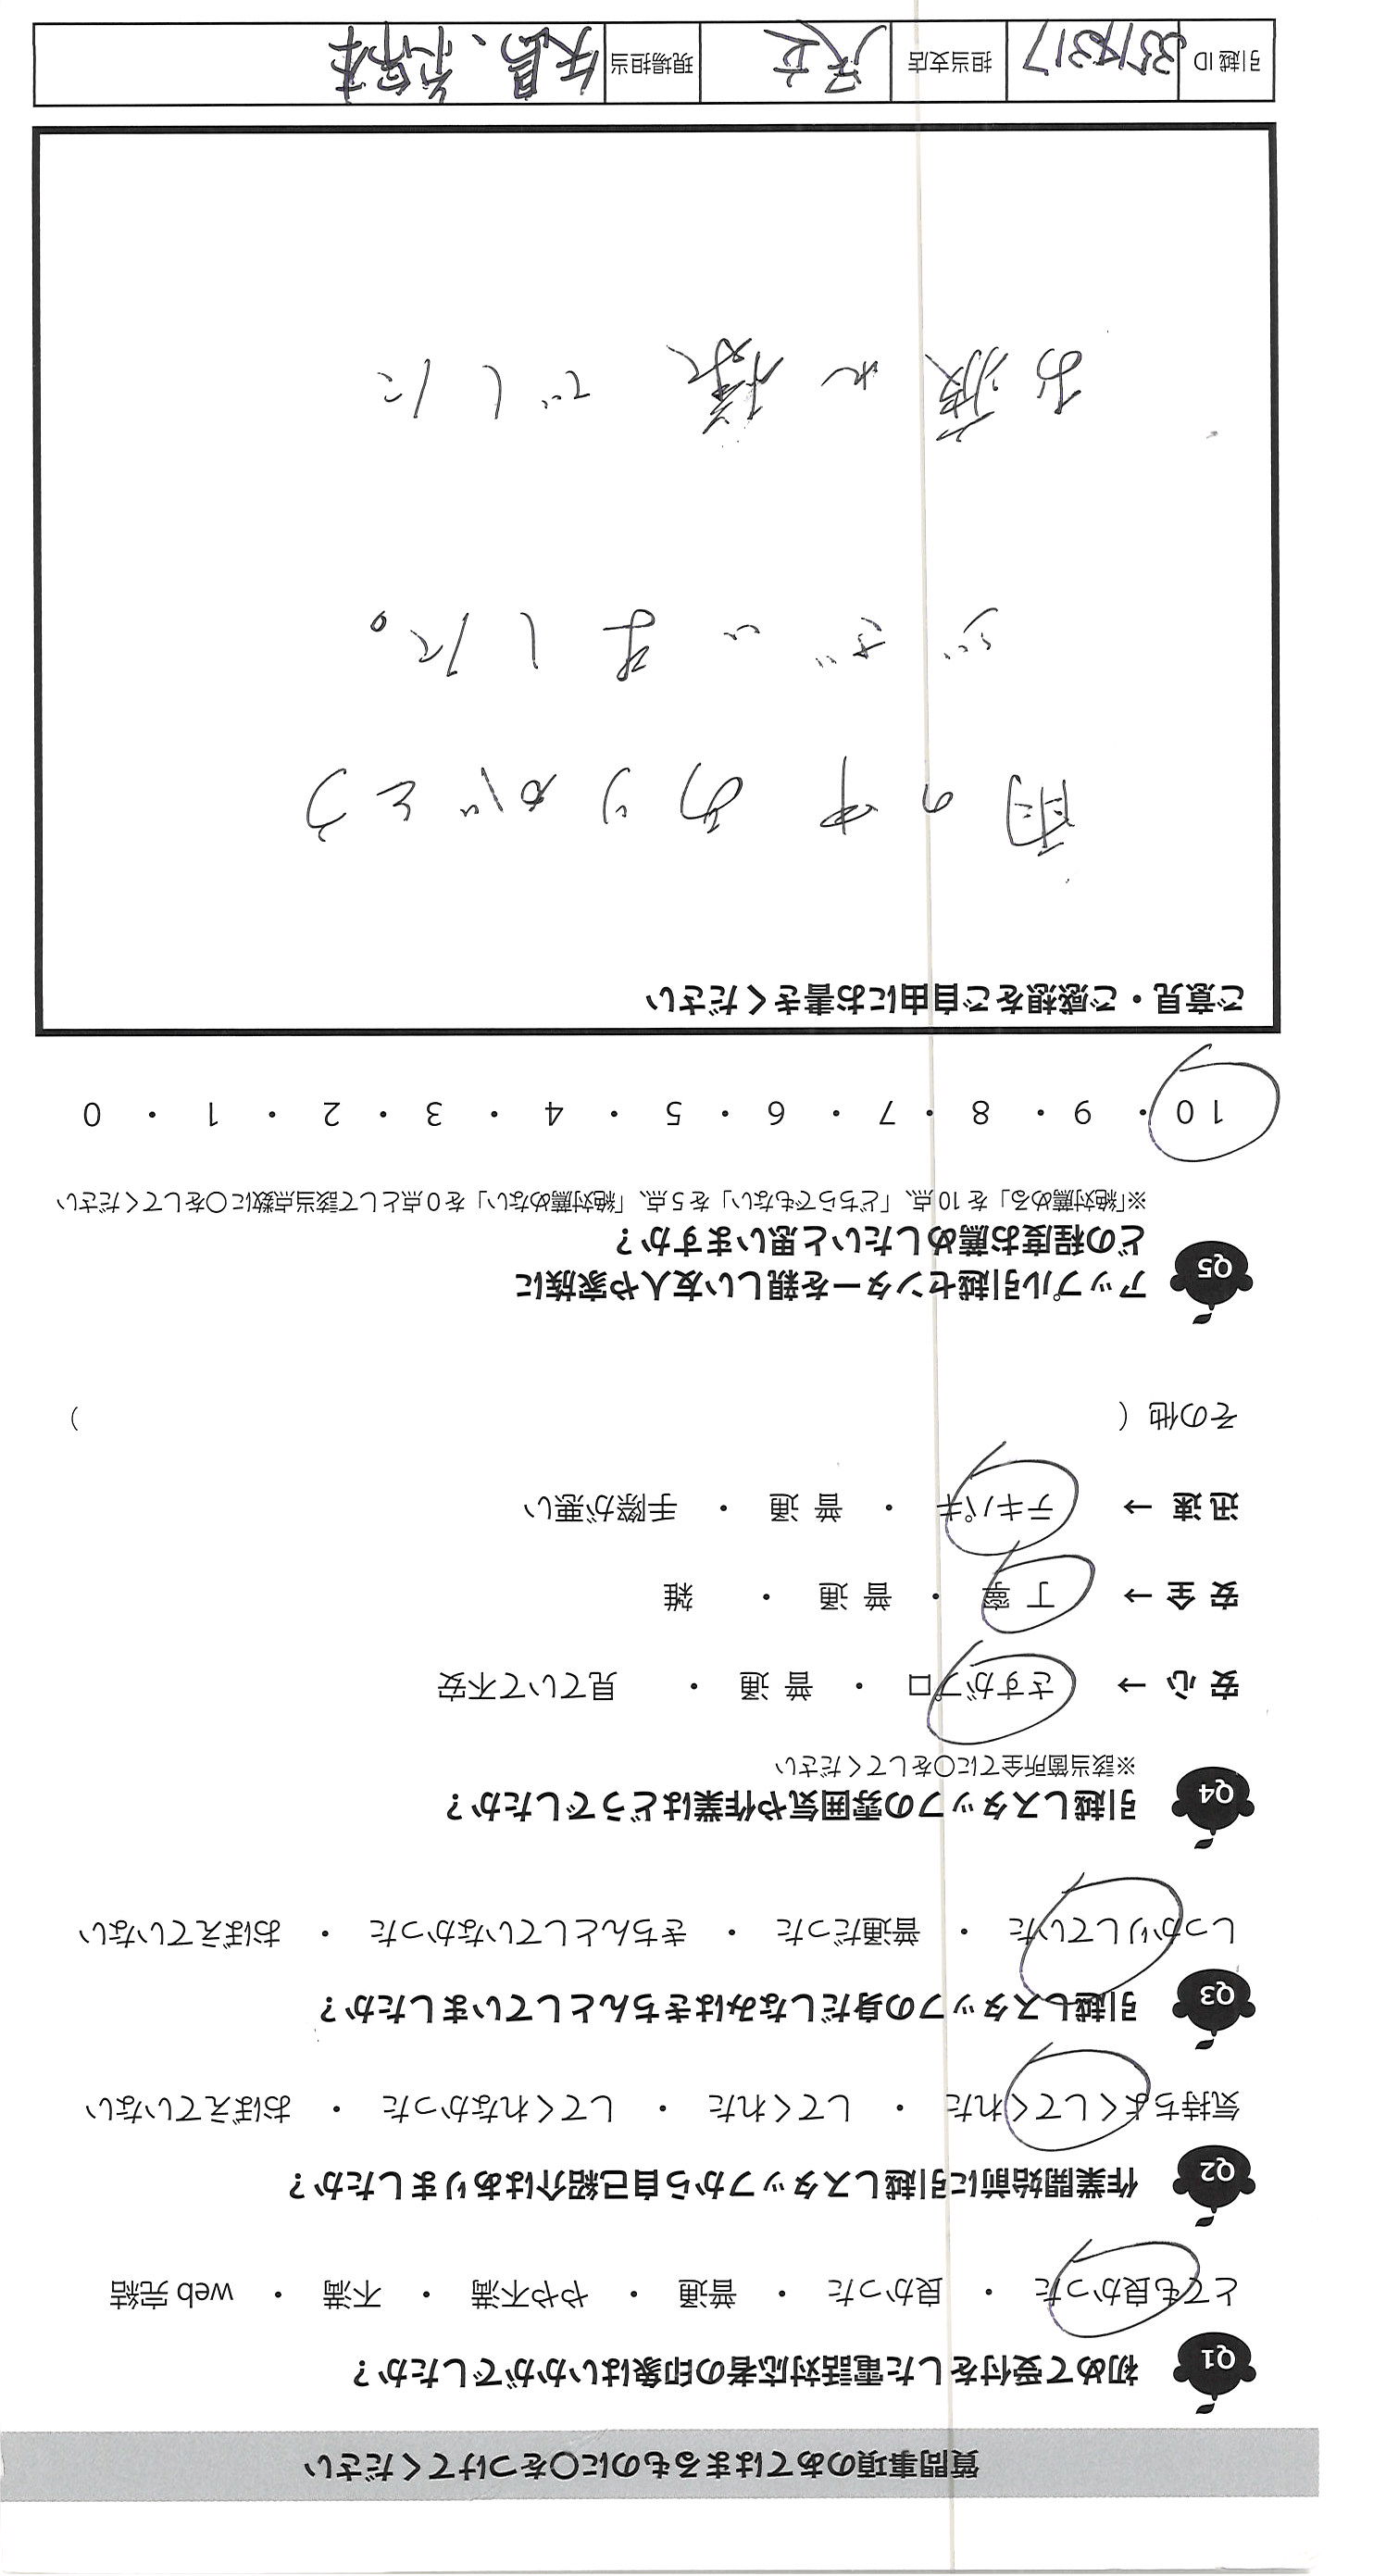 質問事項のあてはまるものに〇をつけてください
Q1 初めて受付をした電話対応者の印象はいかがでしたか？
とても良かった ・ 良かった ・ 普通 ・ やや不満 ・ 不満 ・ web 完結
Q2 作業開始前に引越しスタッフから自己紹介はありましたか？
気持ちよくしてくれた ・ してくれた ・ してくれなかった ・ おぼえていない
Q3 引越しスタッフの身だしなみはきちんとしていましたか？
しっかりしていた ・ 普通だった ・ きちんとしていなかった ・ おぼえていない
Q4 引越しスタッフの雰囲気や作業はどうでしたか？
※該当箇所全てに〇をしてください
安 心 → さすがプロ ・ 普 通 ・ 見ていて不安
安 全 → 丁 寧 ・ 普 通 ・ 雑
迅 速 → テキパキ ・ 普 通 ・ 手際が悪い
その他 （ ）
Q5 アップル引越センターを親しい友人や家族に
どの程度お薦めしたいと思いますか？
※「絶対薦める」を 10 点、「どちらでもない」を 5 点、「絶対薦めない」を 0 点として該当点数に〇をしてください
10 ・ 9 ・ 8 ・ 7 ・ 6 ・ 5 ・ 4 ・ 3 ・ 2 ・ 1 ・ 0
ご意見・ご感想をご自由にお書きください
雨の中ありがとう
ございました。
お疲れ様でした
引越 ID 担当支店 足立 現場担当